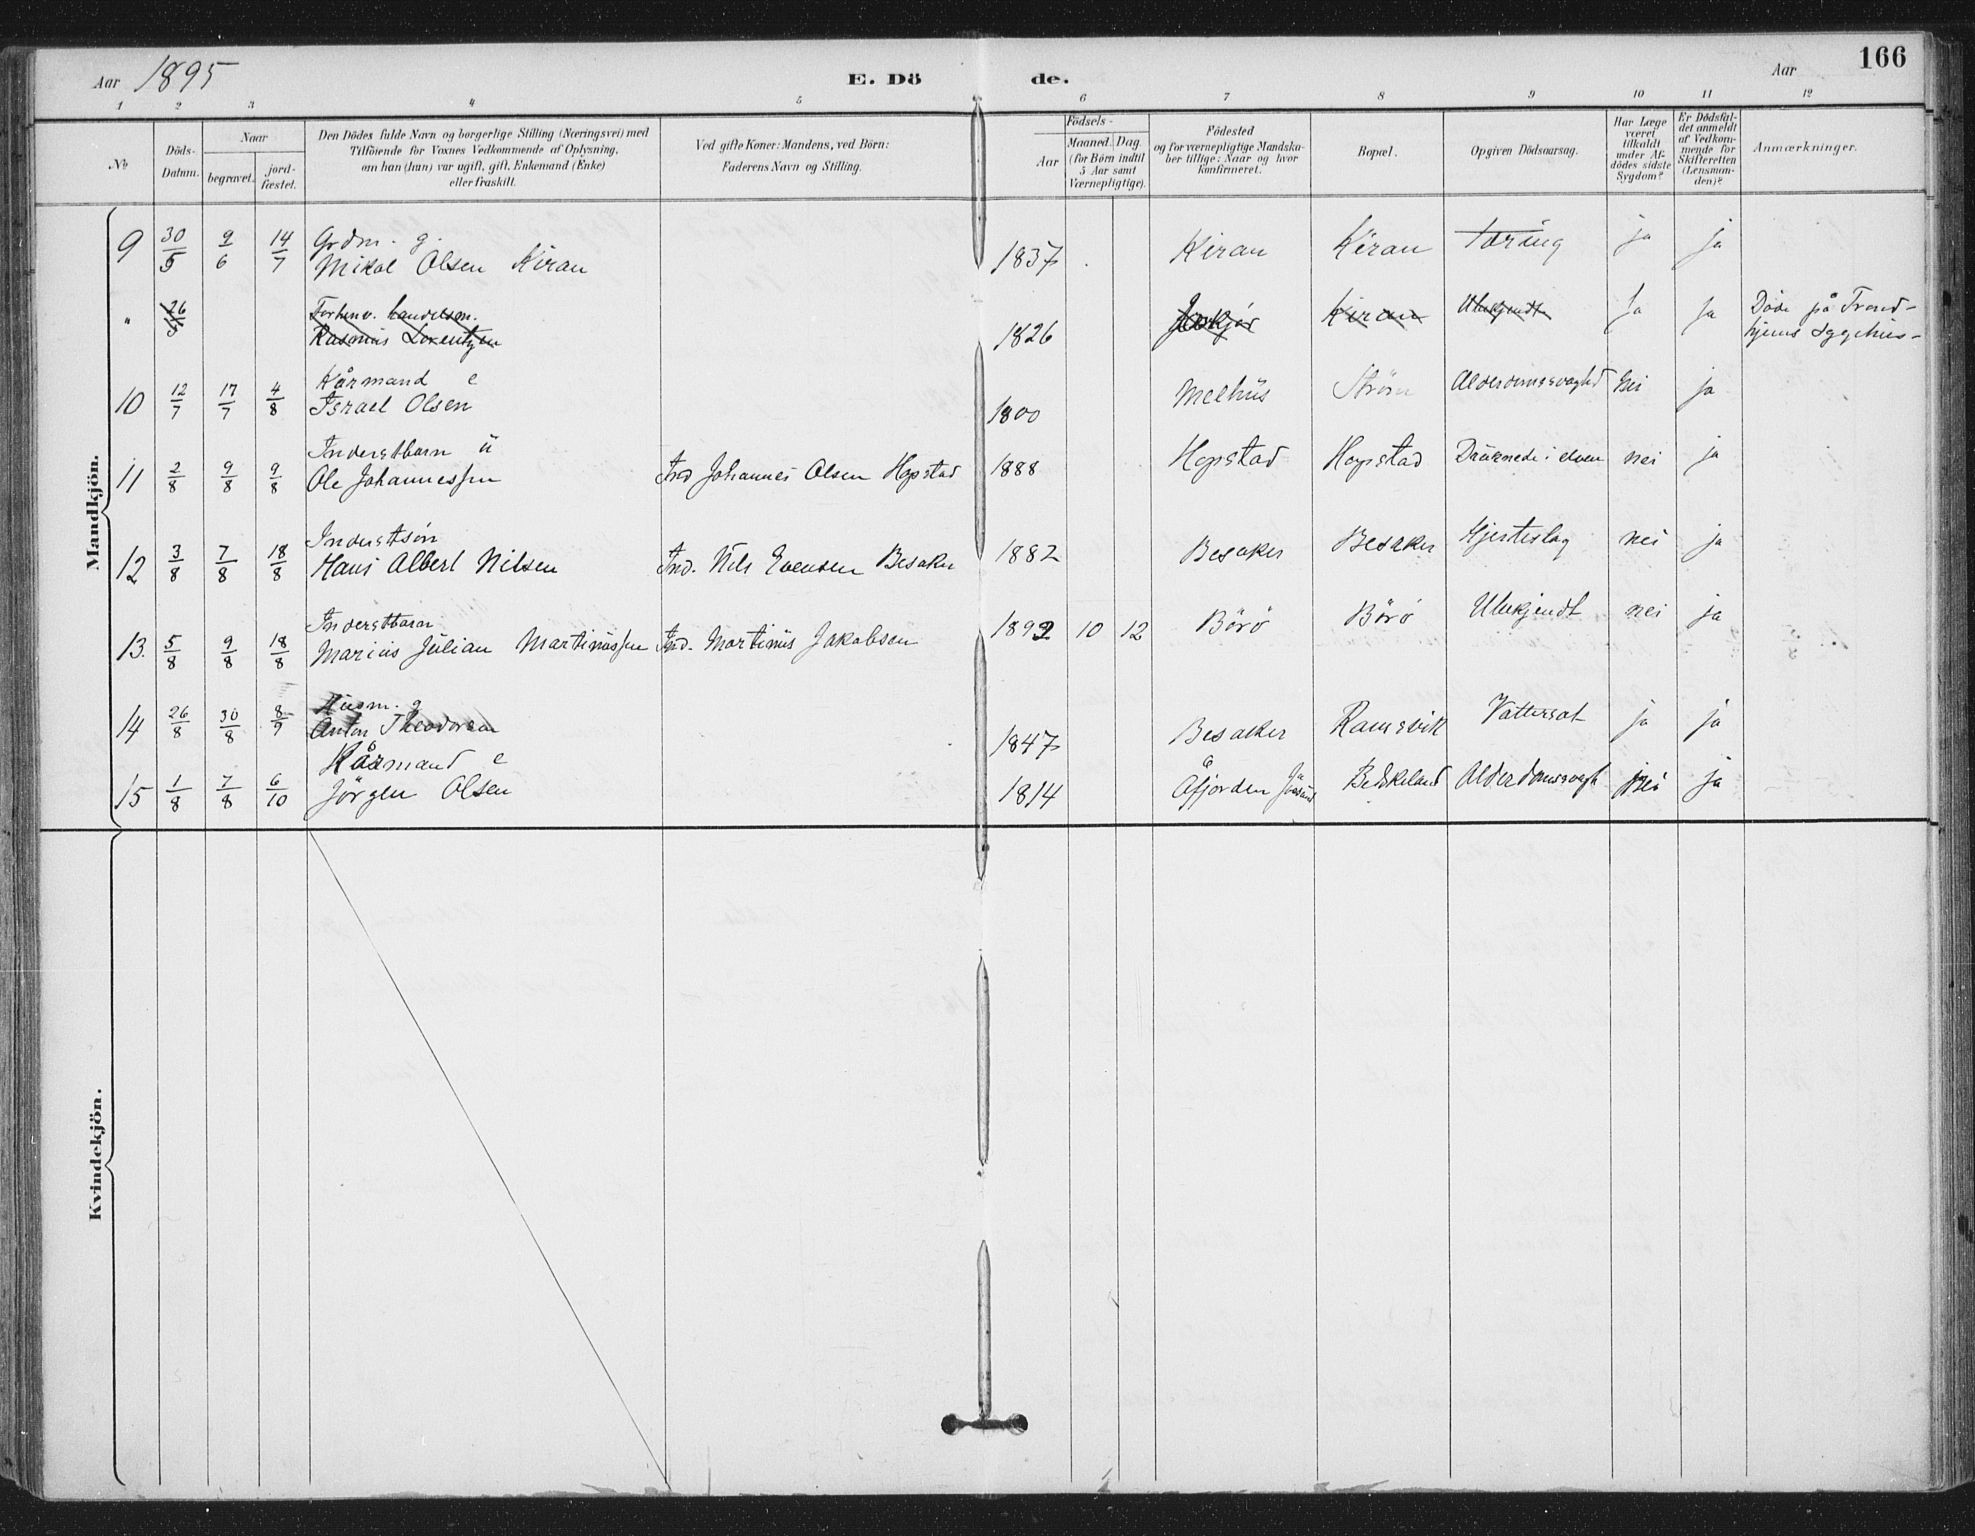 Aar 1895 E. Dö de. Aar 166
1 2 3 4 5 6 7 8 9 10 11 12
No
Döds-
Datum.
Naar
begravet.
jord-
fæstet.
Den Dödes fulde Navn og borgerlige Stilling (Næringsvei) med
Tilföiende for Voxnes Vedkommende af Oplysning,
om han (hun) var ugift, gift, Enkemand (Enke)
eller fraskilt.
Ved gifte Koner: Mandens, ved Börn:
Faderens Navn og Stilling.
Födsels-
Aar
Maaned. Dag.
(for Börn indtil
5 Aar samt
Værnepligtige).
Födested
og for værnepligtige Mandska-
ber tillige: Naar og hvor
konfirmeret.
Bopæl.
Opgiven Dödsaarsag.
Har Læge
været
tilkaldt
under Af-
dödes sidste
Sygdom?
Er Dödsfal-
det anmeldt
af Vedkom-
mende for
Skifteretten
(Lensman-
den)?
Anmærkninger.
Mandkjön.
9 30/5 9/6 14/7 Grdm. g.
Mikal Olsen Kiran 1837 Kiran Kiran Tæring ja ja
" 26/5 Forhenv. handelsm.
Rasmus Lorentzen 1826 Kiran Ubekjendt Ja ja Döde på Trond-
hjems sygehus-
10 12/7 17/7 4/8 Kårmand e
Israel Olsen 1800 Melhus Strøm Alderdomssvaghed Nei ja
11 2/8 9/8 9/8 Inderstbarn u
Ole Johannessen Ind Johannes Olsen Hopstad 1888 Hopstad Hopstad Druknede i elven nei ja
12 3/8 7/8 18/8 Inderstsön
Hans Albert Nilsen Ind. Nils Evensen Besaker 1882 Besaker Besaker Hjerteslag nei ja
13. 5/8 9/8 18/8 Inderstbarn
Marius Julian Martinussen Ind. Martinus Jakobsen 1892 10 12 Börö Börö Ubekjendt nei ja
14 26/8 30/8 8/9 Husm. g
Anton Theodorsen 1847 Besaker Ramsvik Vattersot ja ja
15 1/8 7/8 6/10 Kårmand e
Jörgen Olsen 1814 Åfjorden Alderdomssvagh nei ja
Kvindekjön.